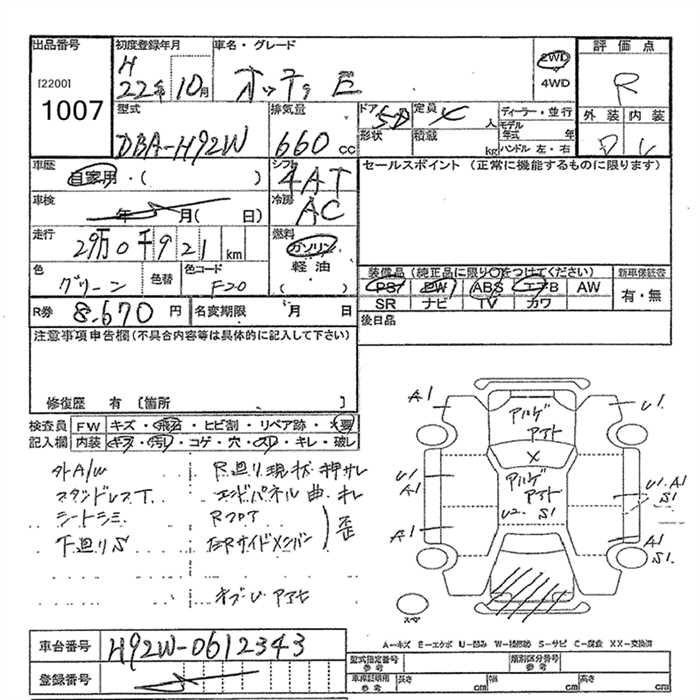 出品番号
[2200]
1007
初度登録年月
H
22年 10月
車名・グレード
オッティ E
2WD
4WD
評価点
R
外装 内装
D
型式
DBA-H92W
排気量
660 cc
ドア 5D
形状
定員 人
積載 kg
ディーラー・並行
モデル年式 年
ハンドル 左・右
車歴
自家用・( )
シフト
4AT
セールスポイント (正常に機能するものに限ります)
車検
年 月( 日)
冷房
AC
走行
29万0千921km
燃料
ガソリン
軽油
( )
色
グリーン
色替
色コード
F20
装備品(純正品に限り○をつけてください)
PS PW ABS エアB AW
SR ナビ TV カワ
新車保証書
有・無
R券 8.670円
名変期限 月 日
後日品
注意事項申告欄(不具合内容等は具体的に記入して下さい)
修復歴 有 [箇所 ]
検査員記入欄
FW キズ・飛石・ヒビ割・リペア跡・X要
内装 キズ・汚レ・コゲ・穴・スレ・キレ・破レ
外A/W
スタンドレスT
シートシミ
下廻りS
R廻り現状押サレ
エンドパネル曲・キレ
Rフロア
左Rサイドメンバー
歪
A1
U1
アルゲ
アト
X
U1
A1
アルゲ
アト
U2 S1
U1.A1
S1
A1
A1
S1
スペア
A－キズ E－エクボ U－凹み W－補修跡 S－サビ C－腐食 XX－交換済
車台番号
H92W-0612343
登録番号
型式指定番号 参考
類別区分番号 参考
車庫証明用 参考
長さ cm
幅 cm
高さ cm